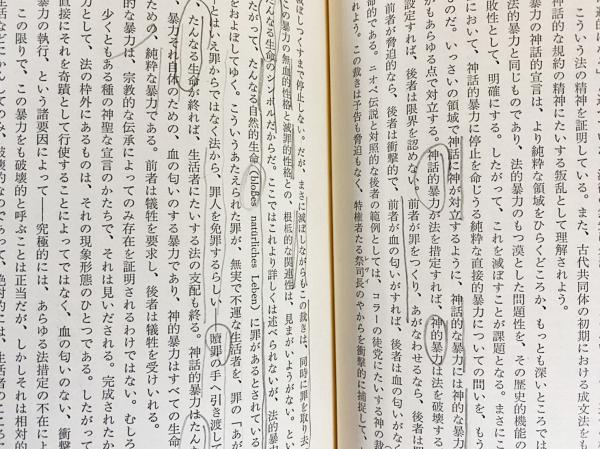 こういう法の精神を証明している。また、古代共同体の初期における成文法をも
神話的な規約の精神にたいする叛乱として理解されよう。
暴力の神話的宣言は、より純粋な領域をひらくどころか、もっとも深いところでは
の法的暴力と同じものであり、法的暴力のもつ漠とした問題性を、その歴史的機能の
敗性として、明確にする。したがって、これを滅ぼすことが課題となる。まさにこ
において、神話的暴力に停止を命じうる純粋な直接的暴力についての問いを、もう
ものだ。いっさいの領域で神話に神が対立するように、神話的な暴力には神的な暴力
があらゆる点で対立する。神話的暴力が法を措定すれば、神的暴力は法を破壊する
設定すれば、後者は限界を認めない。前者が罪をつくり、あがなわせるなら、後者は罪
前者が脅迫的なら、後者は衝撃的で、前者が血の匂いがすれば、後者は血の匂いがなく
命的である。ニオベ伝説と対照的な後者の範例としては、コラーの徒党にたいする神の裁
。この裁きは予告も脅迫もなく、特権者たる祭司長のやからを衝撃的に捕捉して、
滅ぼしつくすまで停止しない。だが、まさに滅ぼしながらもこの裁きは、同時に罪を取り去
この暴力の無血的性格と滅罪的性格との、根柢的な関連性は、見まがいようがない。とい
たんなる生命のシンボルだからだ。ここではこれより詳しくは述べられないが、法的暴
たがって、たんなる自然的生命(bloßes natürliches Leben)に罪があるとされている
をおよぼしてゆく。こういうあたえられた罪が、無実で不運な生活者を、罪の「あが
とはいえ罪からではなく法から、罪人を免罪するらしい──贖罪の手へ引き渡して
たんなる生命が終れば、生活者にたいする法の支配も終る。神話的暴力はたんな
暴力それ自体のための、血の匂いのする暴力であり、神的暴力はすべての生命
ための、純粋な暴力である。前者は犠牲を要求し、後者は犠牲を受けいれる。
的な暴力は、宗教的な伝承によってのみ存在を証明されるわけではない。むしろ
少くともある種の神聖な宣言のかたちで、それは見いだされる。完成されたか
力として、法の枠外にあるものは、それの現象形態のひとつである。したがって
直接にそれを奇蹟として行使することによってではなく、血の匂いのない、衝撃
暴力の執行、という諸要因によって──究極的には、あらゆる法措定の不在によ
この限りで、この暴力をも破壊的と呼ぶことは正当だが、しかしそれは相対的
生活などにかんしてのみ、破壊的なのであって、絶対的には、生活者のこころに